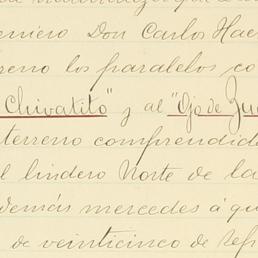 eniero Don Carlos Hae
reno los paralelos co
Chivatito" y al "Ojo de Jua
terreno comprendid
l lindero Norte de la
demás mercedes á qu
de veinticinco de Sep